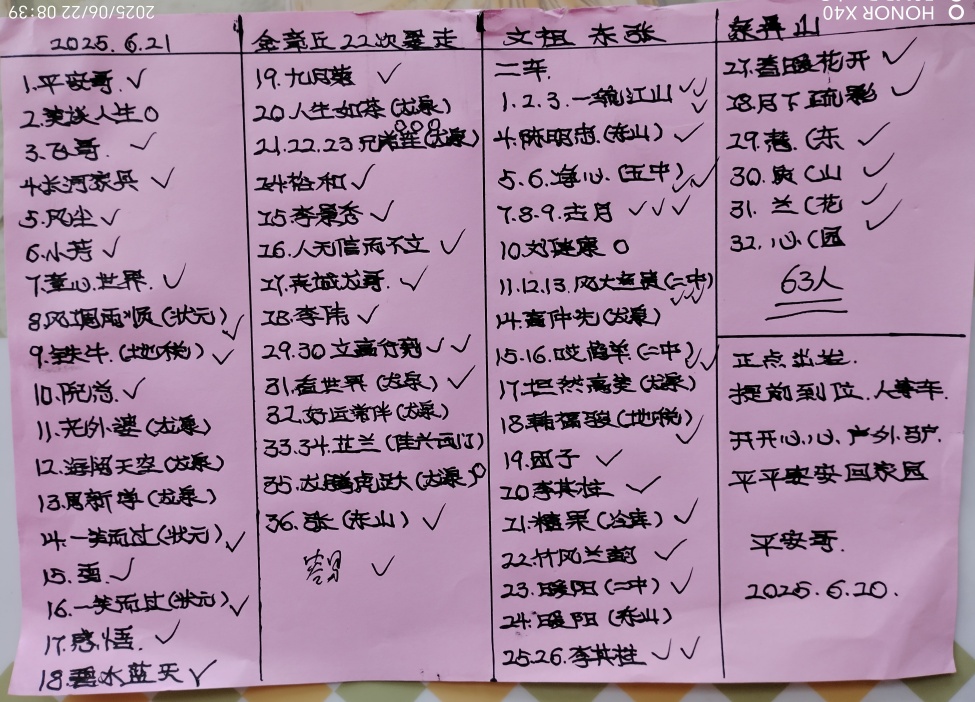 2025.6.21
1.平安哥 ✓
2.笑谈人生 O
3.飞哥. ✓
4.长河家兵 ✓
5.风尘 ✓
6.小芳 ✓
7.童心世界. ✓
8.风调雨顺(状元) ✓
9.铁牛.(地税) ✓
10.阮总. ✓
11.光外婆(龙泉)
12.海阔天空(龙泉)
13.周新学(龙泉)
14.一笑而过(状元) ✓
15.雪. ✓
16.一笑而过(状元) ✓
17.感悟. ✓
18.碧水蓝天 ✓
22次 走
19.九月菊 ✓
20.人生如茶(龙泉)
21.22.23 (龙泉) OOO
24.裕和 ✓
25.李景秀 ✓
26.人无信而不立 ✓
27. 龙哥. ✓
28.李伟 ✓
29.30 ✓✓
31.看世界(龙泉) ✓
32.好运常伴(龙泉)
33.34.芷兰
35.龙腾虎跃大(龙泉) O
36.张(东山) ✓
✓
文祖 东张
二车.
1.2.3.一统江山 ✓✓✓
4.陈明忠.(东山) ✓
5.6.净心.(五中) ✓✓
7.8.9.古月 ✓✓✓
10.刘健康 O
11.12.13. (二中) ✓✓✓
14.高仲先(龙泉)
15.16.哎简单(二中) ✓✓
17.坦然 (龙泉)
18.韩福骏(地税) ✓
19.园子 ✓
20.李其桂 ✓
21.糖果(冷库) ✓
22.竹风兰韵 ✓
23.暖阳(二中) ✓
24.暖阳(东山)
25.26.李其桂 ✓✓
山
27.春暖花开 ✓
28.月下疏影 ✓
29. (东 ✓
30. (山 ✓
31.兰(花 ✓
32.心(园 ✓
63人
正点出发.
提前到位.人等车.
开开心心.户外 .
平平安安回家园
平安哥.
2025.6.20.
HONOR X40
2025/06/22 08:39